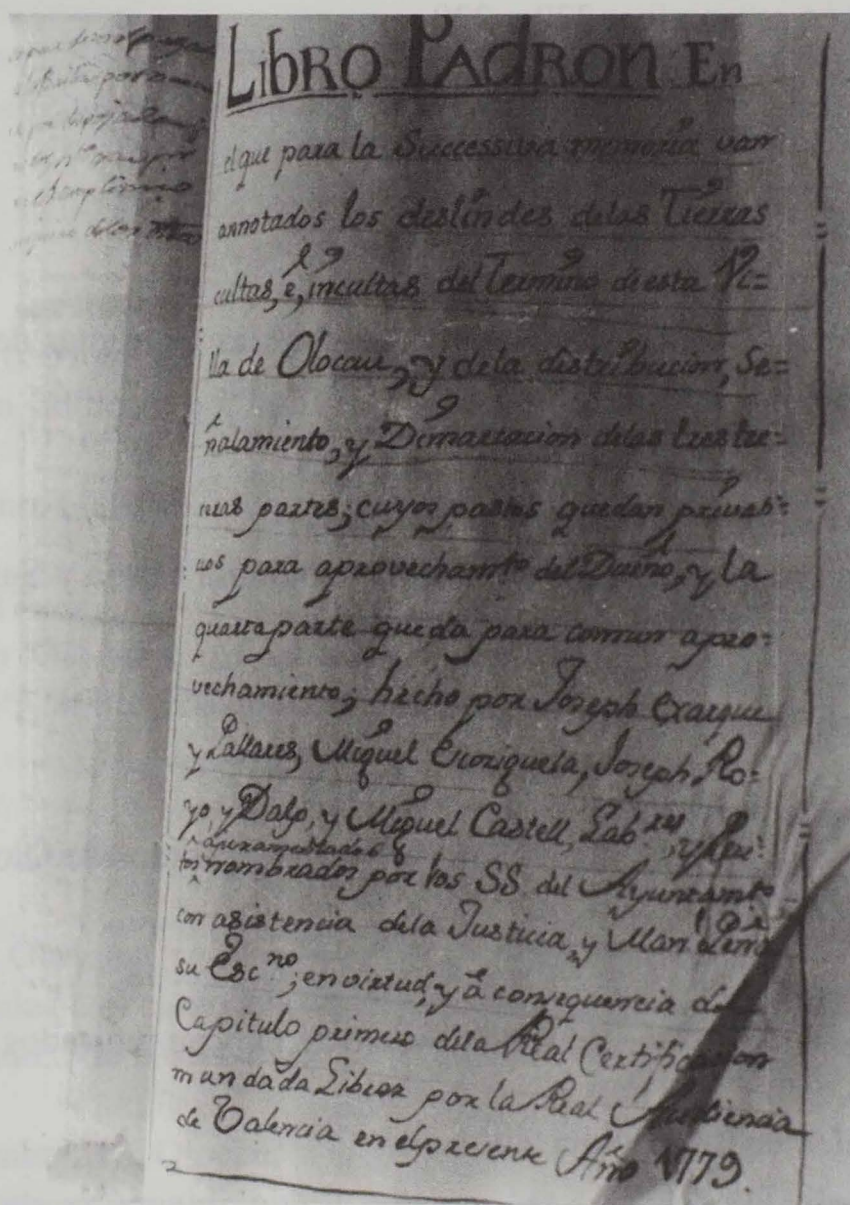 LIBRO PADRON En
el que para la Successiva memoria van
annotados los deslindes delas Tierras
cultas, é, incultas del Termino de esta Vi=
lla de Olocau, y dela distribucion, Se=
ñalamiento, y Dimarcacion delas tres tre=
nas partes; cuyos pastos quedan privati=
vos para aprovechamto del Dueño, y la
quarta parte queda para comun apro=
vechamiento; hecho por Joseph Exarque
y Pallares, Miguel Enrigueta, Joseph Ro=
yo, y Dalp, y Miguel Castell, Labres, y Peri=
ajuramentados
tos nombrados por los SS. del Ayuntamto
con asistencia dela Justicia, y Manl
su Escno; en virtud, y á consequencia del
Capitulo primero dela Real Certificacion
mandada Librar por la Real Audiencia
de Valencia en el presente Año 1779.